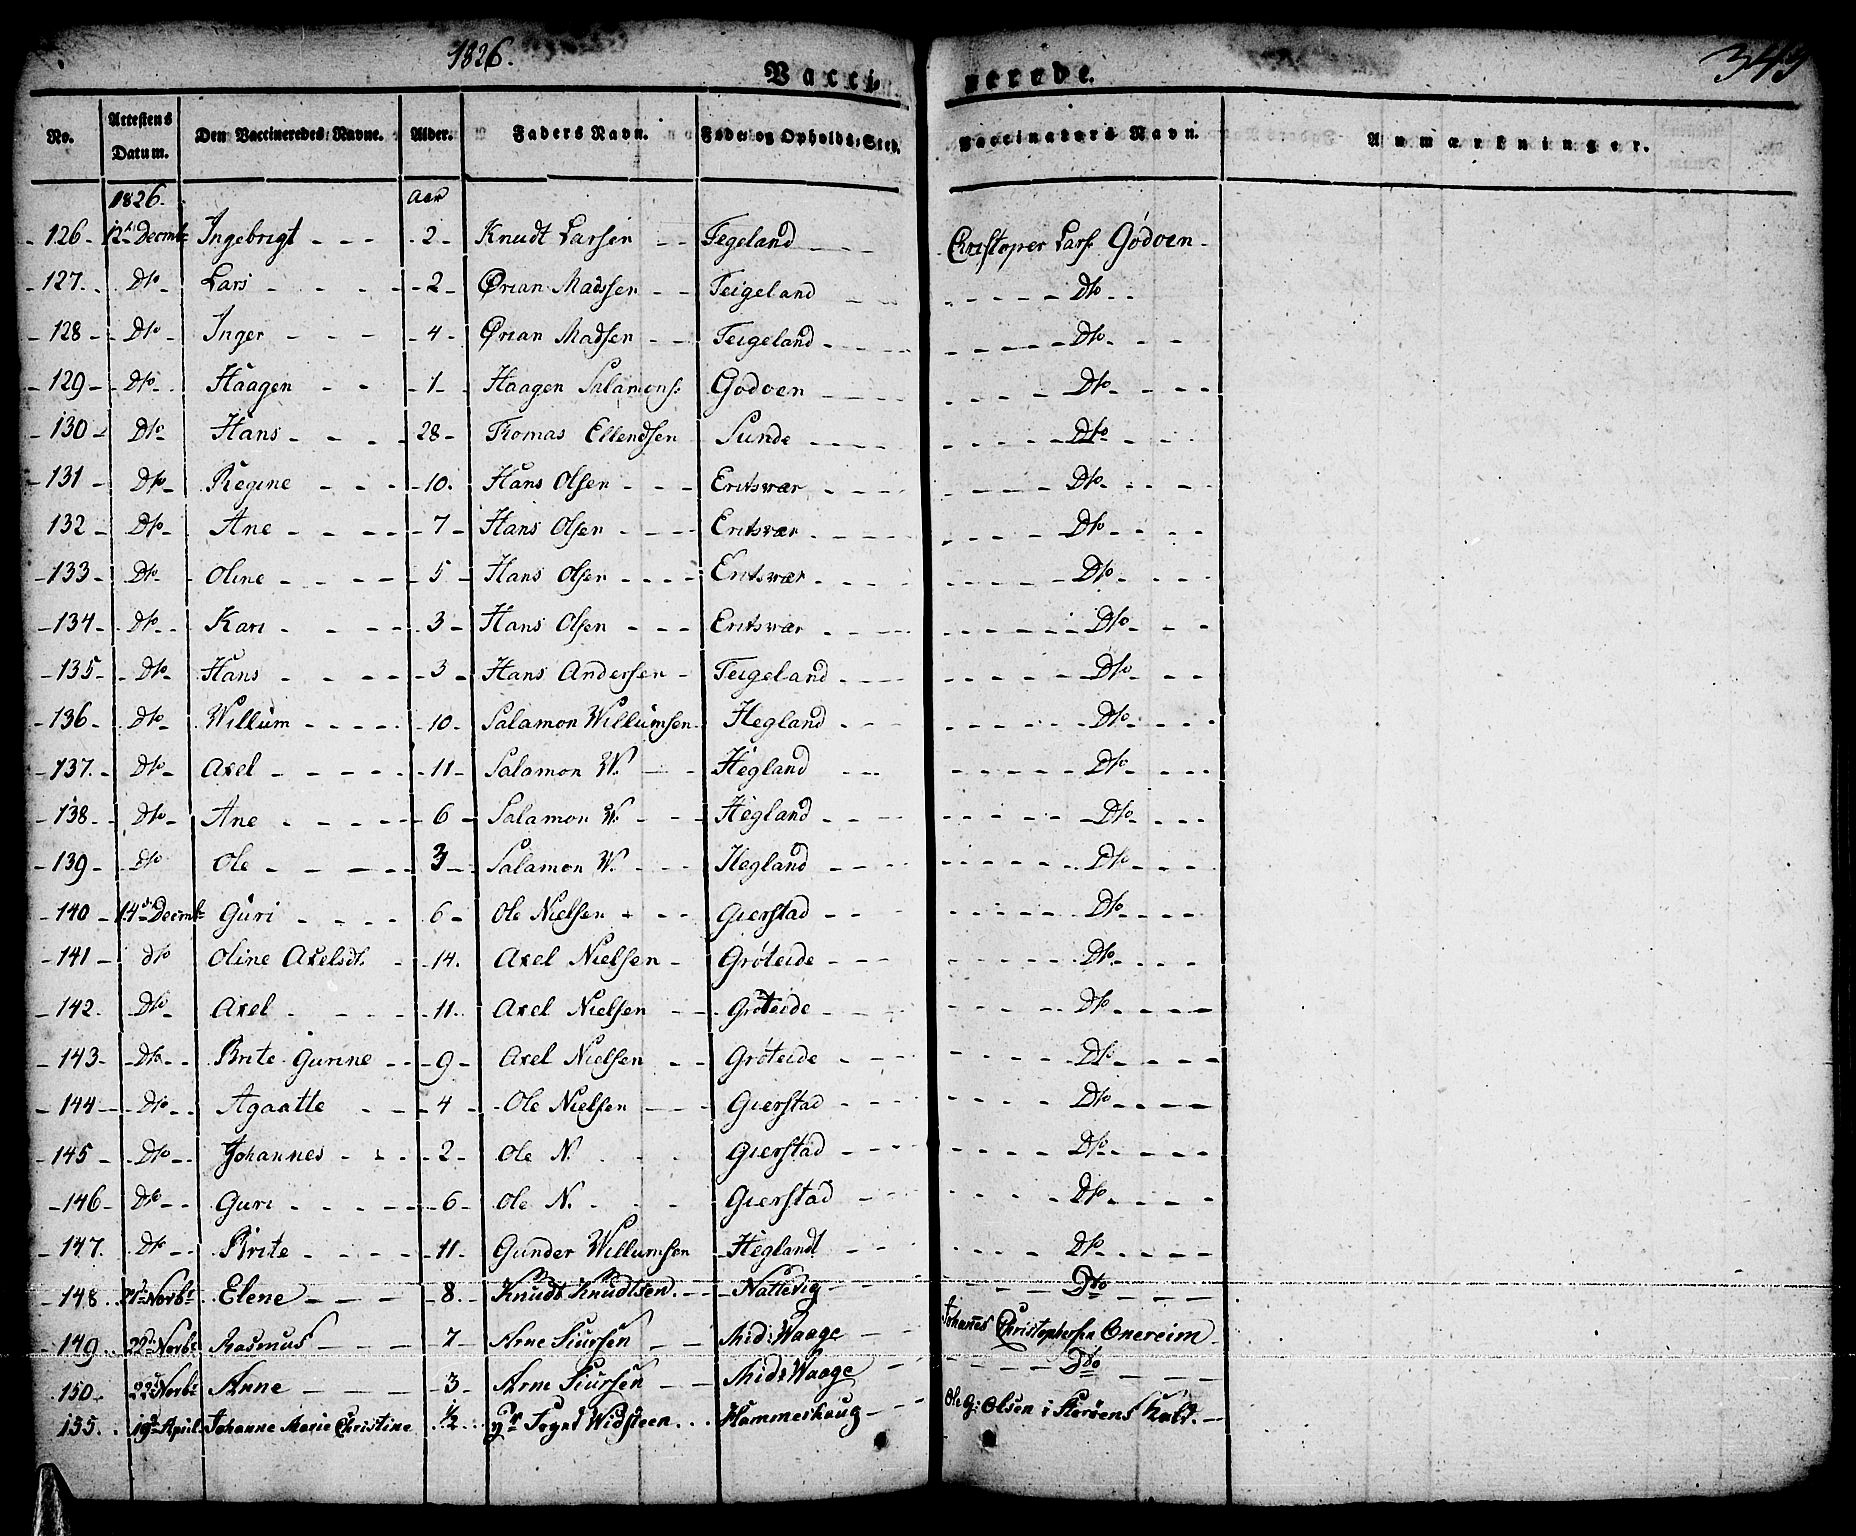 1826.
Vaccinerede.
349
No. Attestens Datum. Den Vaccineredes Navne. Alder. Faders Navn. Føde- og Opholds-Sted. Vaccinateurs Navn. Anmærkninger.
1826. Aar
126 12te Decmb Ingebrigt 2 Knudt Larsen Tegeland Christoper Lars Godøen
127. Dto Lars 2 Ørian Madssen Teigeland Dto
128 Dto Inger 4 Ørian Madsen Teigeland Dto
129 Dto Haagen 1 Haagen Salamons: Godøen Dto
130 Dto Hans 28 Thomas Ellendsen Sunde Dto
131 Dto Regine 10. Hans Olsen Eritsvær Dto
132 Dto Ane 7 Hans Olsen Eritsvær Dto
133 Dto Oline 5 Hans Olsen Eritsvær Dto
134 Dto Kari 3 Hans Olsen Eritsvær Dto
135 Dto Hans 3 Hans Andersen Teigeland Dto
136 Dto Willum 10 Salamon Willumsen Hegland Dto
137. Dto Axel 11 Salamon W. Hegland Dto
138 Dto Ane 6 Salamon W. Hegland Dto
139 Dto Ole 3 Salamon W. Hegland Dto
140 14de Decmb Guri 6 Ole Nielsen Gierstad Dto
141 Dto Oline Axelsdt. 14. Axel Nielsen Grøteide Dto
142. Dto Axel 11. Axel Nielsen Grøteide Dto
143 Dto Brite Gurine 9 Axel Nielsen Grøteide Dto
144 Dto Agaatte 4 Ole Nielsen Gierstad Dto
145 Dto Johannes 2 Ole N. Gierstad Dto
146 Dto Guri 6 Ole N. Gierstad Dto
147. Dto Brite 11 Gunder Willumsen Heglandt Dto
148. 21de Novbr Elene 8. Knudt Knudtsen. Nattevig Dto
149 22de Novbr Rasmus 7 Arne Siursen Mid: Waage Johannes Christophersen Enereim
150 22de Novbr Anne 3 Arne Siursen Mid: Waage Dto
155. 19de April. Johanne Marie Christine 1/2 Hr Fogd Widsteen Hammerhaug Ole G: Olsen i Storøens Kald.